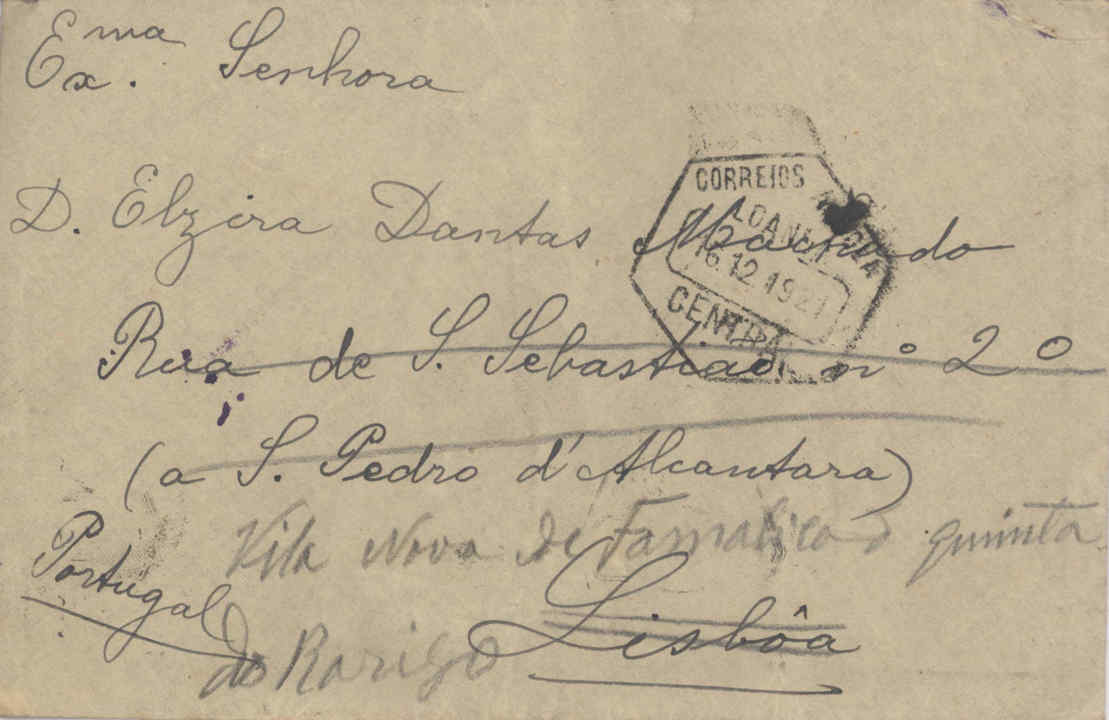 Ex.ma Senhora
D. Elzira Dantas Machado
CORREIOS
LOANDA
16.12.1921
CENTRAL
Rua de S. Sebastião nº 2º
(a S. Pedro d'Alcantara)
Vila Nova de Famalicão quinta
Portugal
Lisbôa
do